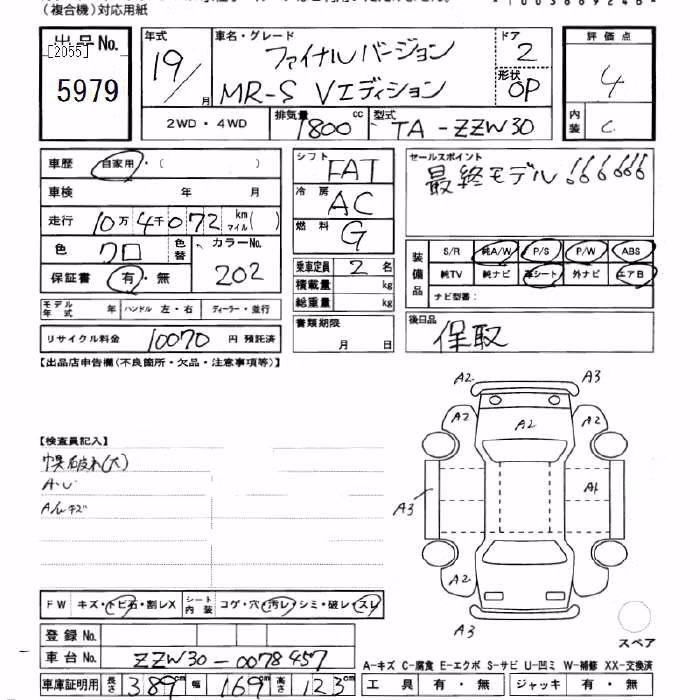 (複合機)対応用紙
出品No.
[2055]
5979
年式
19/
月
車名・グレード
ファイナルバージョン
MR-S Vエディション
ドア
2
形状
OP
評価点
4
内装
C
2WD・4WD
排気量
1800
cc
型式
TA-ZZW30
車歴
自家用・(
)
車検
年
月
走行
10万4千072
km
マイル
( )
色
クロ
色替
カラーNo.
202
保証書
有・無
モデル年式
年
ハンドル
左・右
ディーラー・並行
リサイクル料金
10070
円
預託済
シフト
FAT
冷房
AC
燃料
G
乗車定員
2
名
積載量
kg
総重量
kg
書類期限
月
日
セールスポイント
最終モデル
装備品
S/R
純A/W
P/S
P/W
ABS
純TV
純ナビ
革シート
外ナビ
エアB
ナビ型番:
後日品
保取
【出品店申告欄(不良箇所・欠品・注意事項等)】
【検査員記入】
幌破れ(大)
A・U
Aルキズ
A2
A3
A2
A2
A2
A1
A3
A2
A2
A3
スペア
FW
キズ・トビ石・割レX
シート内装
コゲ・穴・汚レ・シミ・破レ・スレ
登録No.
車台No.
ZZW30-0078457
車庫証明用
長さ
389
cm
幅
169
cm
高さ
123
cm
A-キズ C-腐食 E-エクボ S-サビ U-凹ミ W-補修 XX-交換済
工具
有・無
ジャッキ
有・無